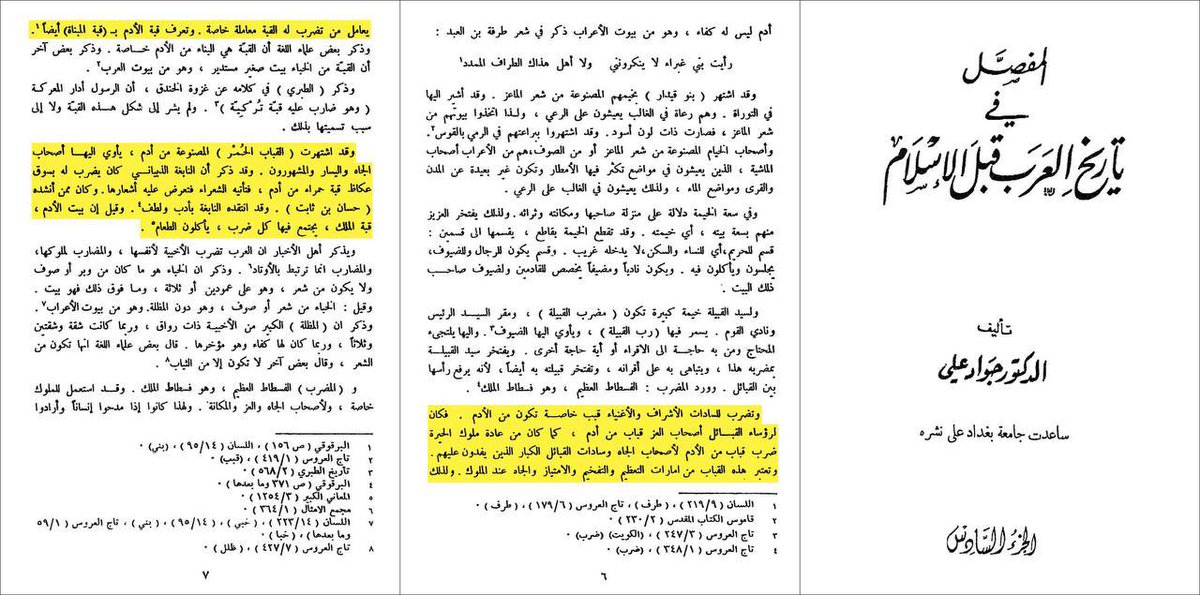 المفصَّل
في
تاريخ العرب قبل الإسلام
تأليف
الدكتور جواد علي
ساعدت جامعة بغداد على نشره
الجزء السادس
أدم ليس له كفاء ، وهو من بيوت الأعراب ذكر في شعر طرفة بن العبد :
رأيت بني غبراء لا ينكرونني ولا أهل هذاك الطراف الممدد١
وقد اشتهر ( بنو قيدار ) بخيمهم المصنوعة من شعر الماعز . وقد أشير اليها
في التوراة . وهم رعاة في الغالب يعيشون على الرعي ، ولذا اتخذوا بيوتهم من
شعر الماعز ، فصارت ذات لون أسود . وقد اشتهروا ببراعتهم في الرمي بالقوس٢.
وأصحاب الخيام المصنوعة من شعر الماعز أو من الصوف،هم من الأعراب أصحاب
الماشية ، الذين يعيشون في مواضع تكثر فيها الأمطار وتكون غير بعيدة عن المدن
والقرى ومواضع الماء ، ولذلك يعيشون في الغالب على الرعي .
وفي سعة الخيمة دلالة على منزلة صاحبها ومكانته وثرائه . ولذلك يفتخر العزيز
منهم بسعة بيته ، أي خيمته . وقد تقطع الخيمة بقاطع ، يقسمها الى قسمين :
قسم للحريم،أي للنساء والسكن،لا يدخله غريب . وقسم يكون للرجال وللضيوف،
يجلسون ويأكلون فيه . ويكون نادياً ومضيفاً يخصص للقادمين ولضيوف صاحب
ذلك البيت .
ولسيد القبيلة خيمة كبيرة تكون ( مضرب القبيلة ) ، ومقر السيد الرئيس
ونادي القوم . يسمر فيها ( رب القبيلة ) ، ويأوي اليها الضيوف٣. واليها يلتجىء
المحتاج ومن به حاجة الى الاقراء أو أية حاجة أخرى . ويفتخر سيد القبيلة
بمضربه هذا ، ويتباهى به على أقرانه ، وتفتخر قبيلته به أيضاً ، لأنه يرفع رأسها
بين القبائل . وورد المضرب : الفسطاط العظيم ، وهو فسطاط الملك٤.
وتضرب للسادات الأشراف والأغنياء قبب خاصة تكون من الأدم . فكان
لرؤساء القبائل أصحاب العز قباب من أدم ، كما كان من عادة ملوك الحيرة
ضرب قباب من الأدم لأصحاب الجاه وسادات القبائل الكبار الذين يفدون عليهم.
وتعتبر هذه القباب من امارات التعظيم والتفخيم والامتياز والجاه عند الملوك . ولذلك
١ اللسان ( ٢١٩/٩ ) ، ( طرف ) ، تاج العروس ( ١٧٩/٦ ) ، ( طرف ) ٠
٢ قاموس الكتاب المقدس ( ٢٣٠/٢ ) ٠
٣ تاج العروس ( ٢٤٧/٣ ) ، (الكويت) (ضرب) ٠
٤ تاج العروس ( ٣٤٨/١ ) ، (ضرب) ٠
٦
يعامل من تضرب له القبة معاملة خاصة . وتعرف قبة الأدم بـ (قبة المبناة) أيضاً١.
وذكر بعض علماء اللغة أن القبّة هي البناء من الأدم خاصة . وذكر بعض آخر
أن القبّة من الخباء بيت صغير مستدير ، وهو من بيوت العرب٢.
وذكر ( الطبري ) في كلامه عن غزوة الخندق ، أن الرسول أدار المعركة
( وهو ضارب عليه قبّة تُرْكيّة )٣ . ولم يشر إلى شكل هذه القبّة ولا إلى
سبب تسميتها بذلك .
وقد اشتهرت ( القباب الحُمْر ) المصنوعة من أدم ، يأوي اليها أصحاب
الجاه واليسار والمشهورون . وقد ذكر أن النابغة الذبياني كان يضرب له بسوق
عكاظ قبة حمراء من أدم ، فتأتيه الشعراء فتعرض عليه أشعارها . وكان ممن أنشده
( حسان بن ثابت ) . وقد انتقده النابغة بأدب ولطف٤. وقيل إن بيت الأدم ،
قبة الملك ، يجتمع فيها كل ضرب ، يأكلون الطعام٥ .
ويذكر أهل الأخبار ان العرب تضرب الأخبية لأنفسها ، والمضارب لملوكها،
والمضارب انما ترتبط بالأوتاد٦ . وذكر ان الخباء هو ما كان من وبر أو صوف
ولا يكون من شعر ، وهو على عمودين أو ثلاثة ، وما فوق ذلك فهو بيت .
وقيل : الخباء من شعر أو صوف ، وهو دون المظلة.وهو من بيوت الأعراب٧.
وذكر ان ( المظلة ) الكبير من الأخبية ذات رواق ، وربما كانت شقة وشقتين
وثلاثاً ، وربما كان لها كفاء وهو مؤخرها . قال بعض علماء اللغة انها تكون من
الشعر ، وقال بعض آخر لا تكون إلا من الثياب٨.
و ( المضرب ) الفسطاط العظيم ، وهو فسطاط الملك . وقد استعمل للملوك
خاصة ، ولأصحاب الجاه والعز والمكانة. ولهذا كانوا إذا مدحوا إنساناً وأرادوا
١ البرقوقي ( ص ١٥٦ ) ، اللسان ( ٩٥/١٤ ) ، (بني) ٠
٢ تاج العروس ( ٤١٩/١ ) ، (قبب) ٠
٣ تاريخ الطبري ( ٥٦٨/٢ ) ٠
٤ البرقوقي ( ص ٣٧١ وما بعدها ) ٠
٥ المعاني الكبير ( ١٢٥٤/٣ ) ٠
٦ مجمع الامثال ( ٣٦٤/١ ) ٠
٧ اللسان ( ٢٢٣/١٤ ) ، (خبي) ، ( ٩٥/١٤ ) ، ( بني ) ، تاج العروس ( ٥٩/١
وما بعدها ) ، ( خبأ ) ٠
٨ تاج العروس ( ٤٢٧/٧ ) ، ( ظلل ) ٠
٧